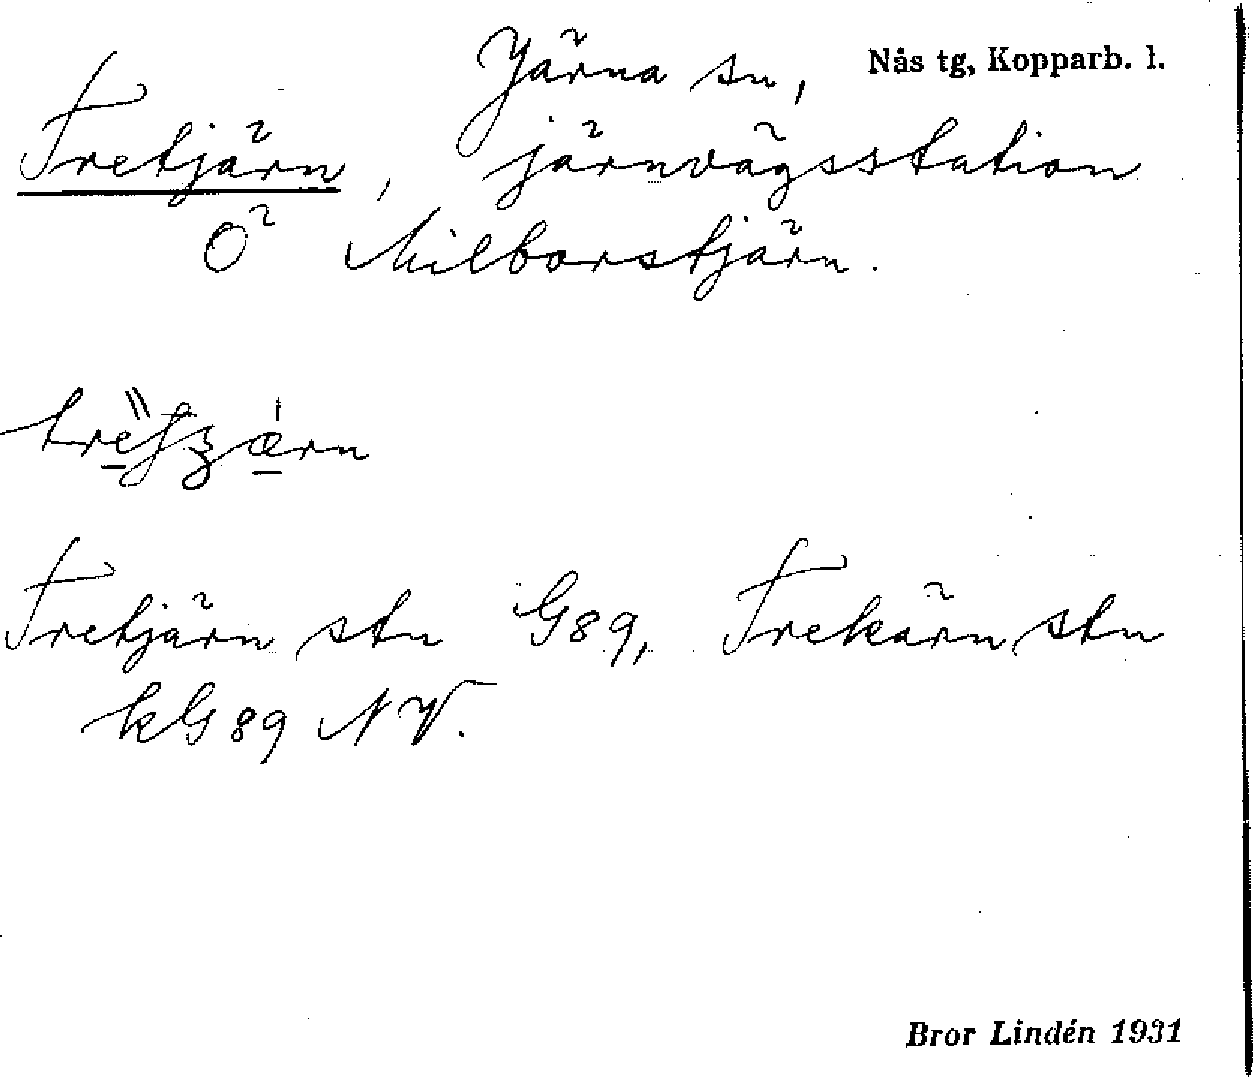 Järna sn, Nås tg, Kopparb. l.
Tretjärn, järnvägsstation
Ö Milborstjärn.
Tretjärn stn G89, Trekärn stn
kG89 NV.
Bror Lindén 1931